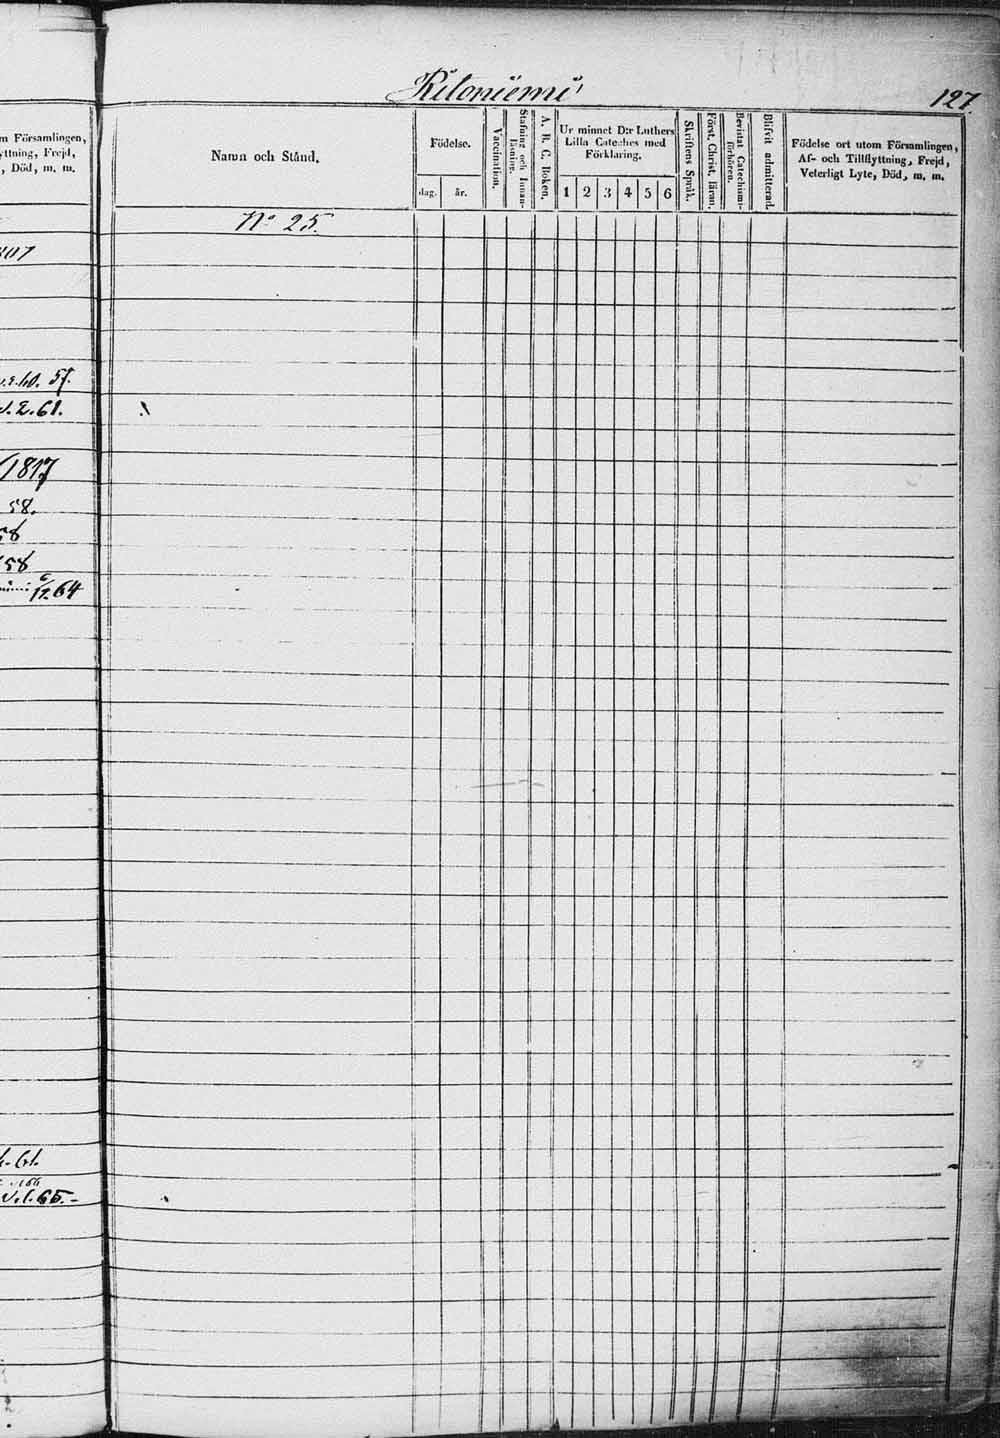 Kiloniemi
127.
m Församlingen,
yttning, Frejd,
, Död, m. m.
Namn och Stånd.
Födelse.
dag. år.
Vaccination.
Stafning och Innan-
läsning.
A. B. C. Boken.
Ur minnet D:r Luthers
Lilla Cateches med
Förklaring.
1 2 3 4 5 6
Skriftens Språk.
Först. Christ. läran.
Bevistat Catechumi-
förhören.
Blifvit admitterad.
Födelse ort utom Församlingen,
Af- och Tillflyttning, Frejd,
Veterligt Lyte, Död, m. m.
No 25.
57.
61.
1817
58.
58
58
64
61.
65.-